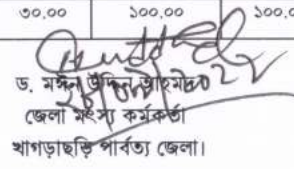 ৩০.০০ ১০০.০০ ১০০.০
ড. মঈন উদ্দিন আহমদ
জেলা মৎস্য কর্মকর্তা
খাগড়াছড়ি পার্বত্য জেলা।